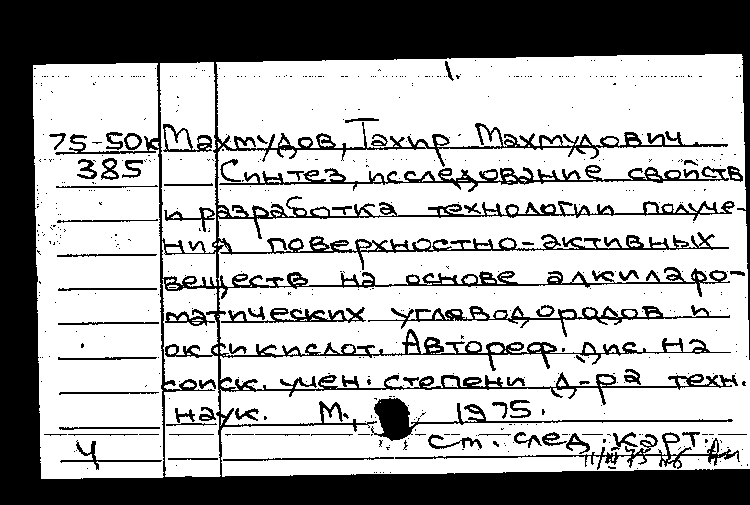 1.
75-50к Махмудов, Тахир Махмудович.
385 Синтез, исследование свойств
и разработка технологии получе-
ния поверхностно-активных
веществ на основе алкиларо-
матических углеводородов и
оксикислот. Автореф. дис. на
соиск. учен. степени д-ра техн.
наук. М., 1975.
ст. след. карт.
Ч